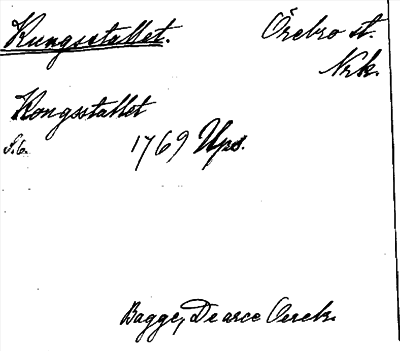 Kungsstallet. Örebro st.
Nrk.
Kongsstallet
S.6. 1769 Ups.
Bagge, De arce Oerek.